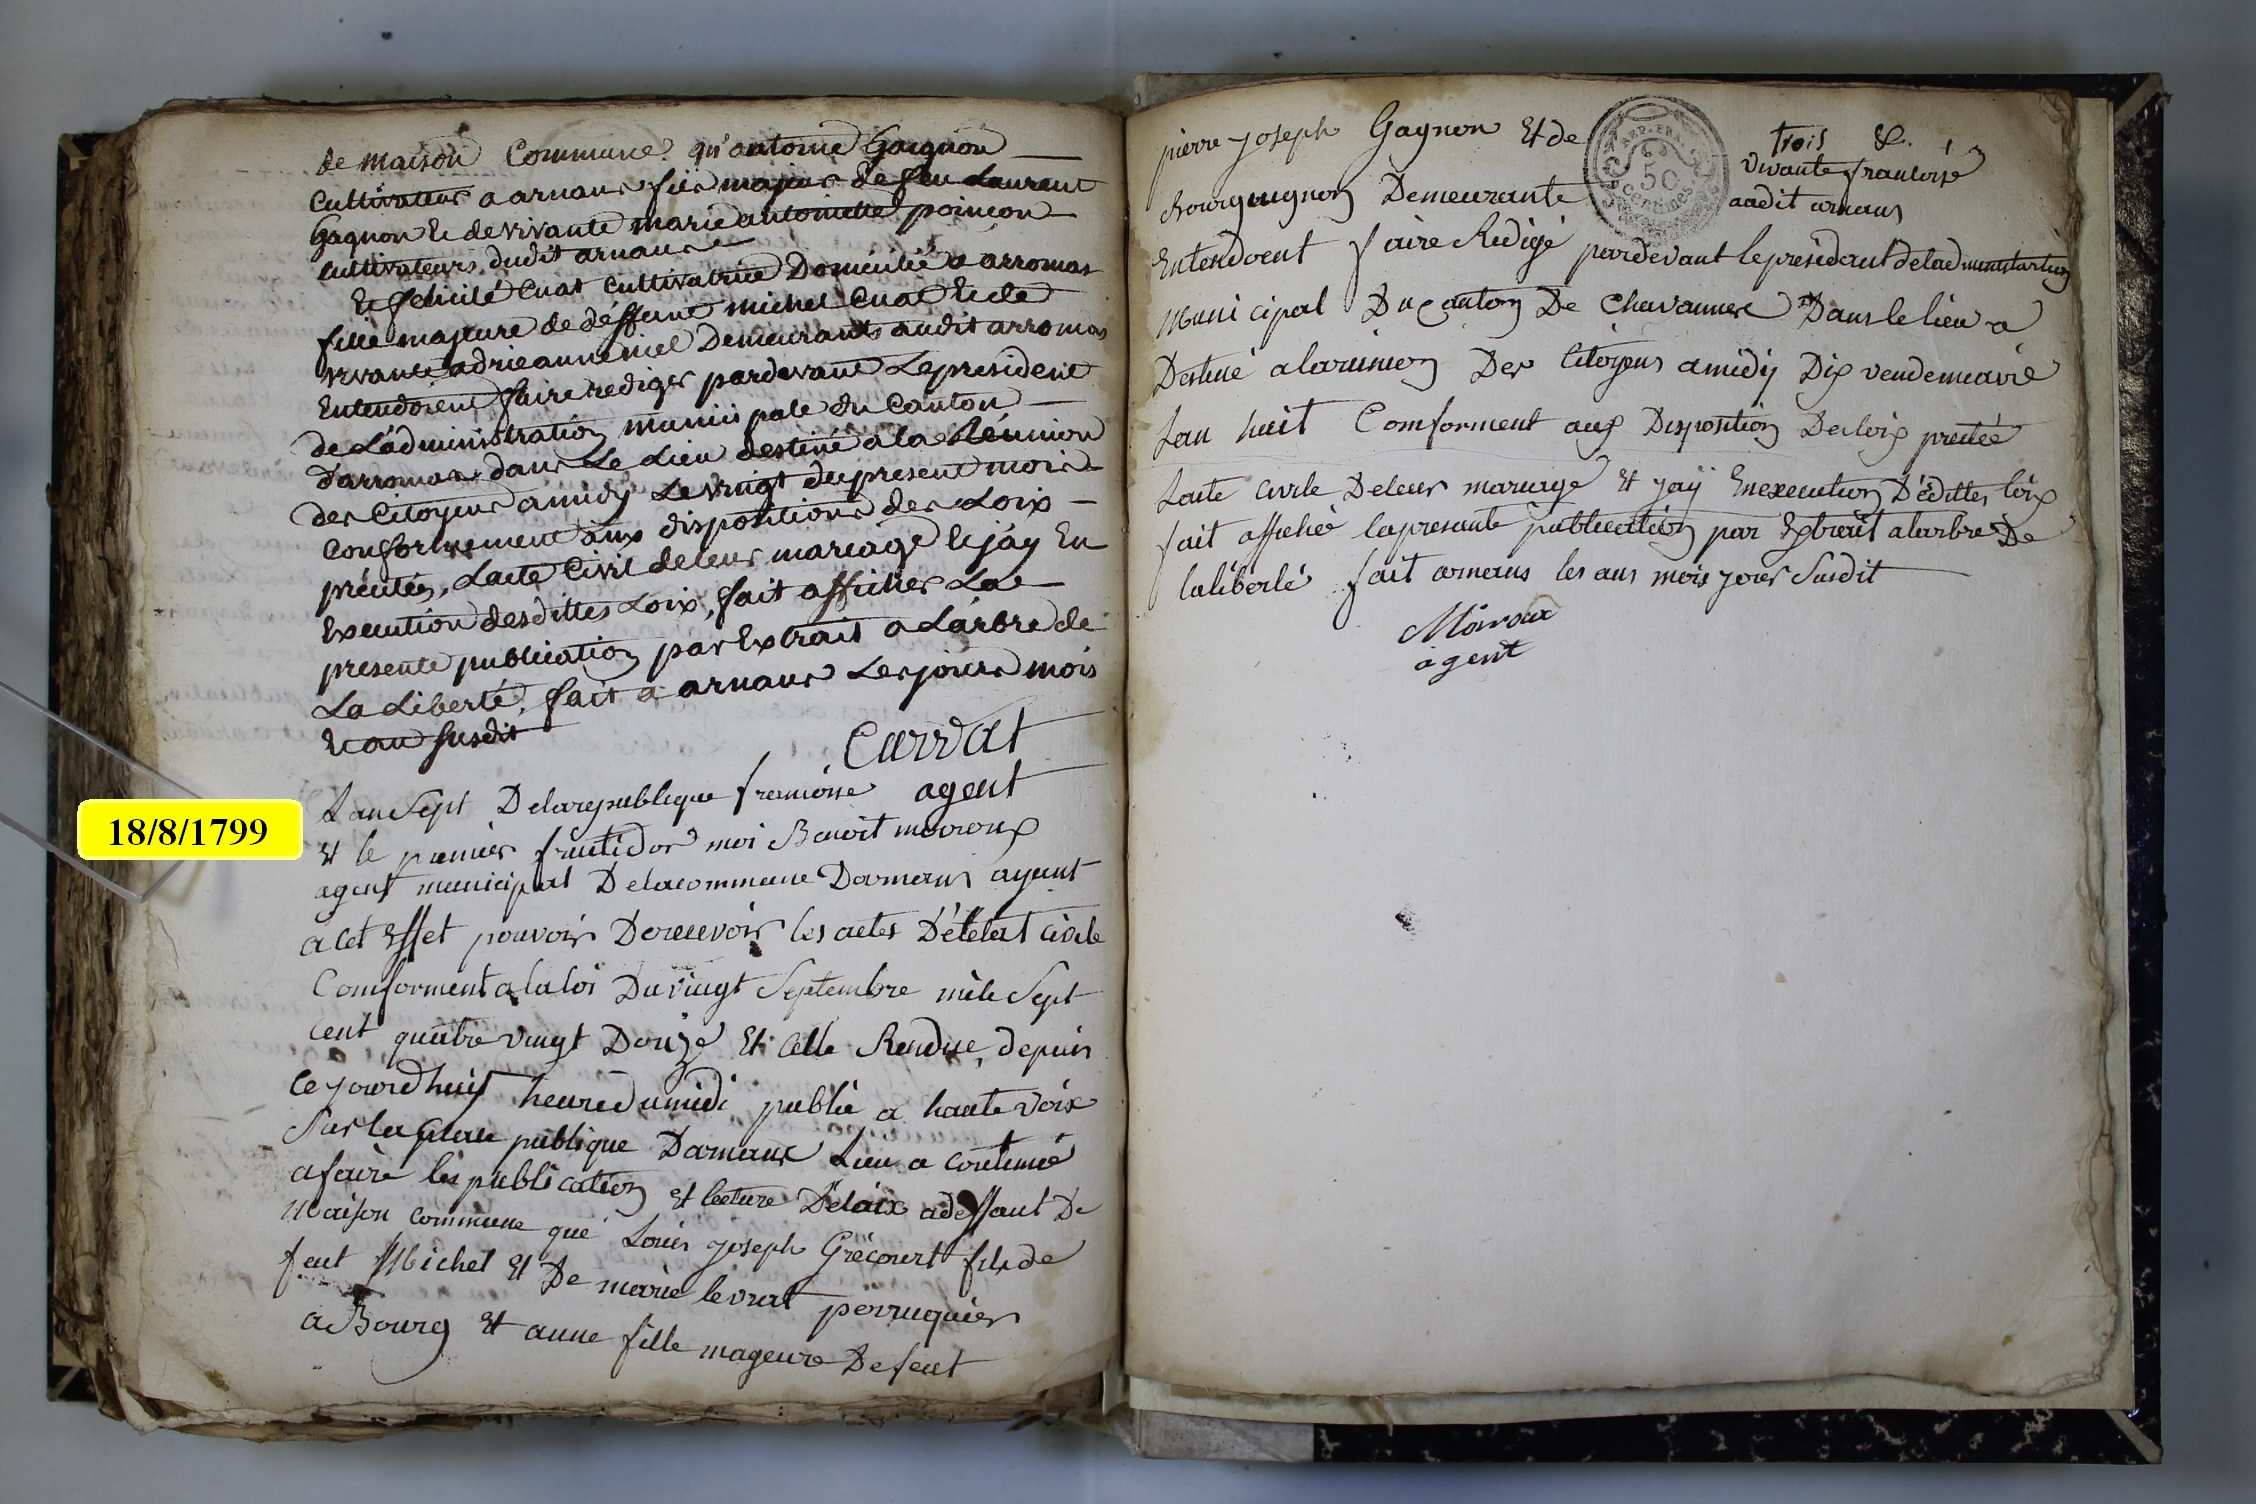 de maison Commune. qu'antoine Gagnon
Cultivateur a arnans fils majeur de feu Laurent
Gagnon Et de vivante marie antoinette poincon
Cultivateurs dudit arnans
Et felicité Cuat Cultivatrice Domicilié a arromas
fille majeure de déffunt michel Cuat Et de
vivante adrieanne niel Demeurants audit arromas
Entendoient faire rediger pardevant Le president
de L'administration municipale du Canton
d'arromas dans Le Lieu destiné a la Réunion
des Citoyens a midy Le vingt du present mois
Conformement aux dispositions des Loix
précités, L'acte Civil de leur mariage Et j'ay En
Execution desdittes Loix, fait afficher La
presente publication par Extrait a L'arbre de
La Liberté, fait a arnans Les jours mois
Et an susdit
Carrat
agent
18/8/1799
L'an Sept Delarepublique francoise
Et le premier fructidor moi Benoit moiroux
agent municipal Delacommune Darnans ayant
a Cet Effet pouvoir Derecevoir les actes D'etetat civile
Comforment a la loi Du vingt Septembre mile Sept
Cent quatre vingt Douze Et Celle Rendue, depuis
Ce jourdhuy heure dumidi publie a haute voix
Sur la place publique Darnans Lieu a Coutumé
a faire les publication et lecture Deloix adeffaut De
Maison commune que Louis joseph Grécourt fils de
feut Michel Et De marie levrat perruquier
a Bourg Et anne fille mageure De feut
pierre joseph Gagnon Et de vivante francoise
trois &.
REP. FRA.
50
Centimes
Bourguignon Demeurante audit arnans
Entendoent faire Redigé pardevant le president delad ministration
Municipal Du canton De Chavannes Dans le lieu a
Destiné alareunion Des Citoyens a midy Dix vendemiaire
Lan huit Comforment aux Disposition Des loix precitée
Lacte civile De leur mariage Et jay Enexecution D'édittes loix
fait affiché la presante publication par Extrait a larbre De
la liberté fait arnans les ans mois jours Susdit
Moiroux
agent